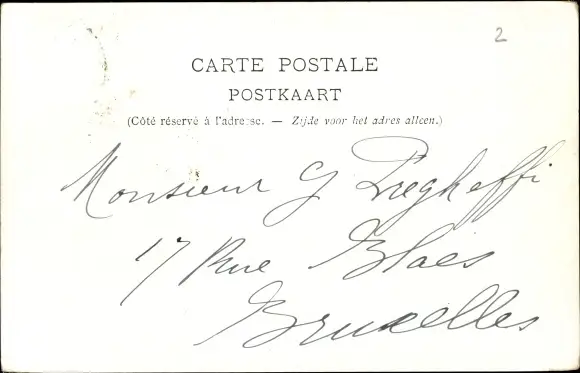 2
CARTE POSTALE
POSTKAART
(Côté réservé à l'adresse. — Zijde voor het adres alleen.)
Monsieur G
17 Rue Blaes
Bruxelles